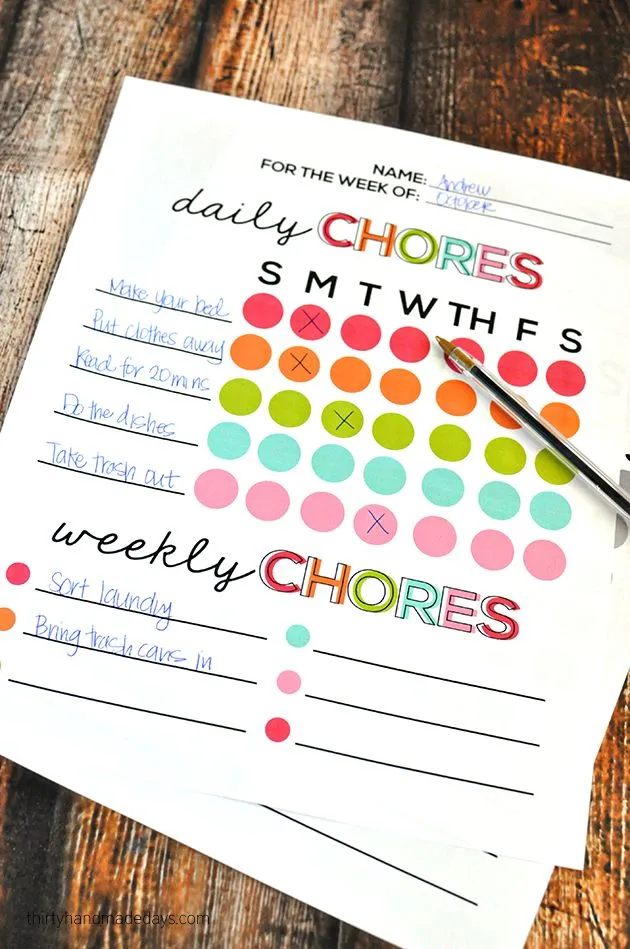 NAME: Andrew
FOR THE WEEK OF: October
daily CHORES
S M T W TH F S
Make your bed
X
Put clothes away
X
Read for 20 mins
X
Do the dishes
Take trash out
X
weekly CHORES
Sort laundry
Bring trash cans in
thirtyhandmadedays.com